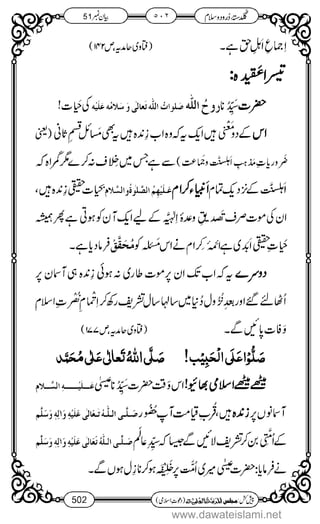 گلدستۂ درود و سلام
۵۰۲
بیان نمبر 51
اجماعِ اہلِ حق ہے۔ (فتاویٰ حامدیہ ص ۱۴۲)
تیسرا عقیدہ:
حضرت سیِّدُنا روحُ اللہ صلوات اللہ تعالٰی و سلامہ علیہ کی حیات۔
اس کے دو معنیٰ ہیں ایک یہ کہ وہ اب زندہ ہیں یہ بھی مسائلِ قسمِ ثانی (یعنی
ضروریاتِ مذہبِ اہلسنّت و جماعت) سے ہے جس میں خلاف نہ کرے گا مگر گمراہ کہ
اہلسنّت کے نزدیک تمام انبیاء کرام علیہم الصلٰوۃ والسلام بحیاتِ حقیقی زندہ ہیں،
ان کی موت صرف تصدیقِ وعدۂ الٰہیہ کے لیے ایک آن کو ہوتی ہے پھر ہمیشہ
حیاتِ حقیقی اَبدی ہے ائمۂ کرام نے اس مسئلہ کو مُحقَّق فرما دیا ہے۔
دوسرے یہ کہ اب تک ان پر موت طاری نہ ہوئی زندہ ہی آسمان پر
اُٹھا لئے گئے اور بعدِ نُزول دُنیا میں سالہا سال تشریف رکھ کر اتمامِ نصرتِ اسلام
وفات پائیں گے۔ (فتاویٰ حامدیہ ص ۱۷۷)
صَلُّوْا عَلَی الْحَبِیْب! صَلَّی اللہُ تَعَالٰی عَلٰی مُحَمَّد
میٹھے میٹھے اسلامی بھائیو! اس وقت حضرت سیِّدُنا عیسیٰ علیہ السلام
آسمانوں پر زندہ ہیں، قُربِ قیامت آپ حضور صلی اللہ تعالٰی علیہ واٰلہ وسلم
کے اُمّتی بن کر تشریف لائیں گے جیسا کہ سیِّدِ عالم صلی اللہ تعالٰی علیہ واٰلہ وسلم
نے فرمایا: حضرت عیسیٰ میری اُمّت پر خلیفہ ہو کر نازل ہوں گے۔
502
پیش کش: مجلس المدینۃ العلمیۃ (دعوتِ اسلامی)
www.dawateislami.net